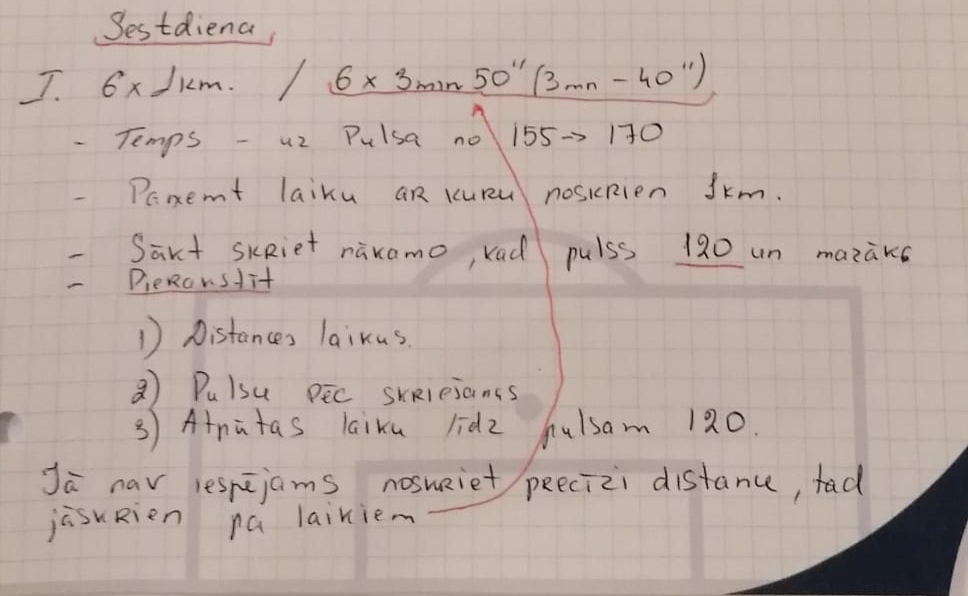 Sestdiena,
I. 6 x 1km. / 6 x 3min 50" (3mn - 40")
- Temps - uz Pulsa no 155 → 170
- Paņemt laiku AR KURU noskrien 1km.
- Sākt skriet nākamo, kad pulss 120 un mazāks
- Pierakstīt
1) Distances laikus.
2) Pulsu pēc skriešanas
3) Atpūtas laiku līdz pulsam 120.
Jā nav iespējams noskriet precīzi distanci, tad
jāskrien pa laikiem